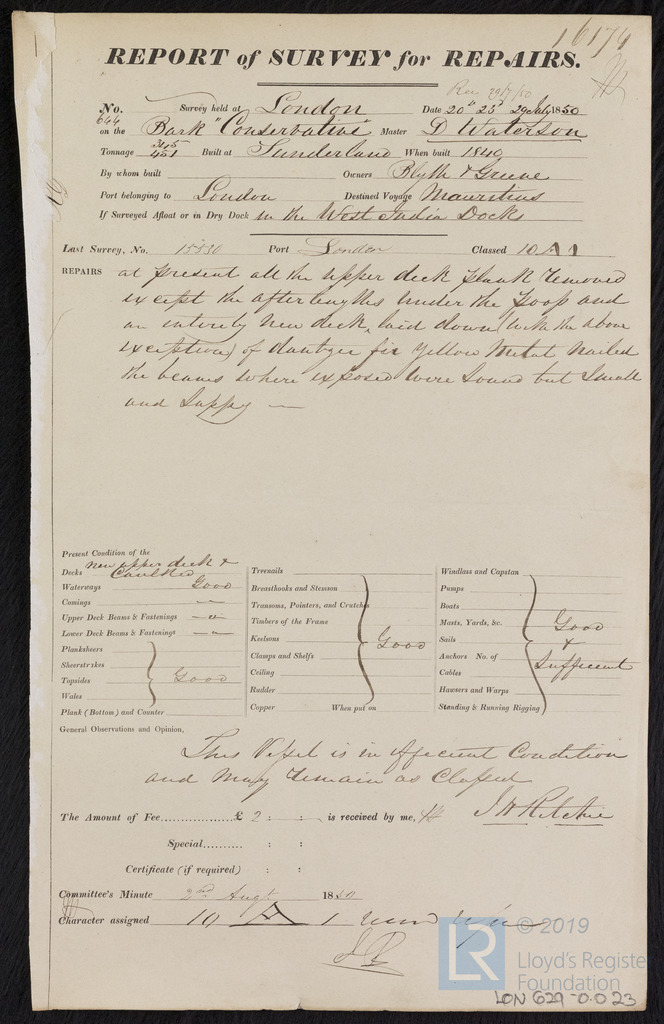 16174
REPORT of SURVEY for REPAIRS.
Rec 29/7/50
No. 644 Survey held at London Date 20th 23d 29 July 1850
on the Bark "Conservative" Master D Waterson
Tonnage 345 / 451 Built at Sunderland When built 1840
By whom built Owners Blyth & Greene
Port belonging to London Destined Voyage Mauritius
If Surveyed Afloat or in Dry Dock in the West India Docks
Last Survey, No. 15330 Port London Classed 10 A 1
REPAIRS at present all the upper deck plank removed
except the after lengths under the poop and
an entirely new deck, laid down (with the above
exception) of dantzic fir yellow metal nailed
the beams where exposed were sound but small
and sappy —
Present Condition of the
Decks new upper deck & Caulked
Waterways Good
Comings —
Upper Deck Beams & Fastenings —"—
Lower Deck Beams & Fastenings —"—
Planksheers
Sheerstrakes
Topsides Good
Wales
Plank (Bottom) and Counter
Treenails
Breasthooks and Stemson
Transoms, Pointers, and Crutches
Timbers of the Frame
Keelsons Good
Clamps and Shelfs
Ceiling
Rudder
Copper When put on
Windlass and Capstan
Pumps
Boats
Masts, Yards, &c. Good
Sails &
Anchors No. of Sufficient
Cables
Hawsers and Warps
Standing & Running Rigging
General Observations and Opinion,
This Vessel is in efficient Condition
and may remain as Classed
The Amount of Fee £ 2 : : is received by me, J W Ritchie
Special : :
Certificate (if required) : :
Committee's Minute 2nd Augt. 1850
Character assigned 10 A 1
LR © 2019
Lloyd's Register
Foundation
LON 629-0.023